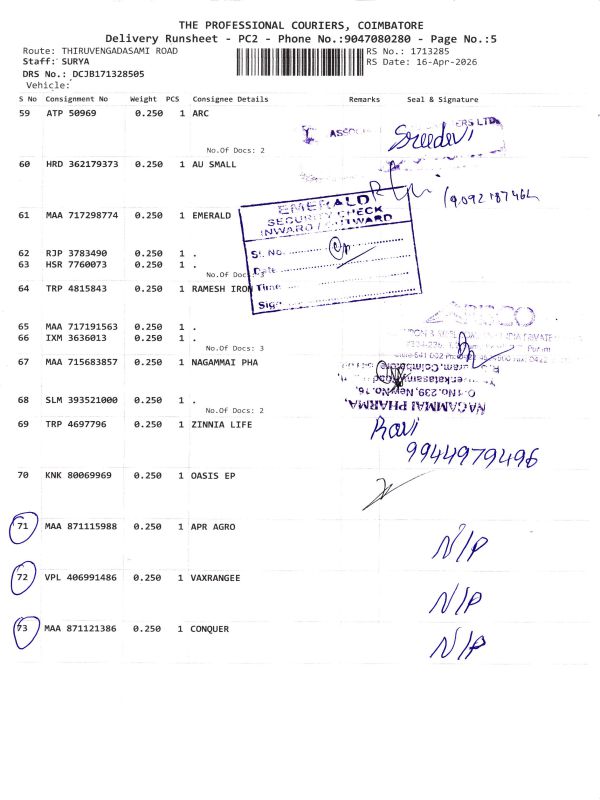 THE PROFESSIONAL COURIERS, COIMBATORE
Delivery Runsheet - PC2 - Phone No.:9047080280 - Page No.:5
Route: THIRUVENGADASAMI ROAD RS No.: 1713285
Staff: SURYA RS Date: 16-Apr-2026
DRS No.: DCJB171328505
Vehicle:
S No Consignment No Weight PCS Consignee Details Remarks Seal & Signature
59 ATP 50969 0.250 1 ARC
ERS LTD
Sreedevi
No.Of Docs: 2
60 HRD 362179373 0.250 1 AU SMALL
61 MAA 717298774 0.250 1 EMERALD
EMERALD
SECURITY CHECK
INWARD / OUTWARD
Sl. No.
Date
Time
Sign
62 RJP 3783490 0.250 1 .
63 HSR 7760073 0.250 1 .
No.Of Docs: 3
64 TRP 4815843 0.250 1 RAMESH IRON
65 MAA 717191563 0.250 1 .
66 IXM 3636013 0.250 1 .
No.Of Docs: 3
67 MAA 715683857 0.250 1 NAGAMMAI PHA
NAGAMMAI PHARMA,
O.No.239, New No.76,
68 SLM 393521000 0.250 1 .
No.Of Docs: 2
69 TRP 4697796 0.250 1 ZINNIA LIFE
Ravi
9944979496
70 KNK 80069969 0.250 1 OASIS EP
71 MAA 871115988 0.250 1 APR AGRO N/P
72 VPL 406991486 0.250 1 VAXRANGEE N/P
73 MAA 871121386 0.250 1 CONQUER N/P